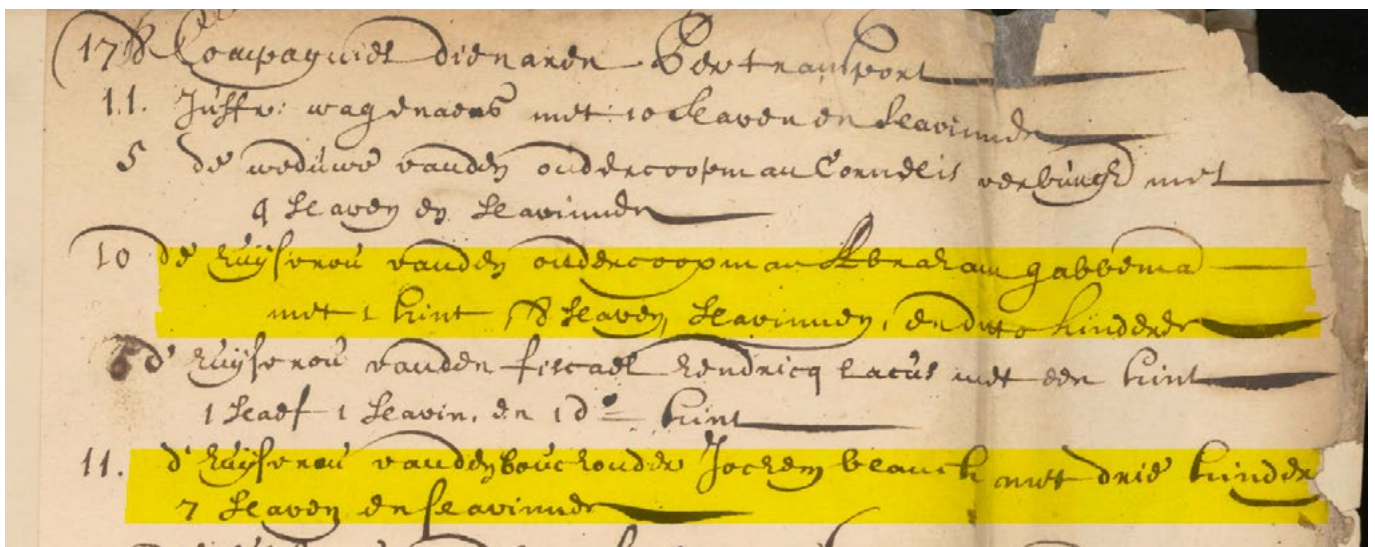 178 Compagnies dienaren Per transport
11. Juffr: wagenaers met 10 slaven en slavinnen
5 de weduwe vanden ondercoopman Cornelis verburgh met
4 slaven en slavinnen
10 de huijsvrou vanden ondercoopman Abraham gabbema
met 1 kint, 8 slaven, slavinnen, en dito kinderen
5 d' huijsvrou vanden fiscael hendricq lacus met een kint
1 slaef 1 slavin, en 1 do kint
11. d' huijsvrou vanden bouchouder Jochem blanck met drie kinder
7 slaven en slavinnen